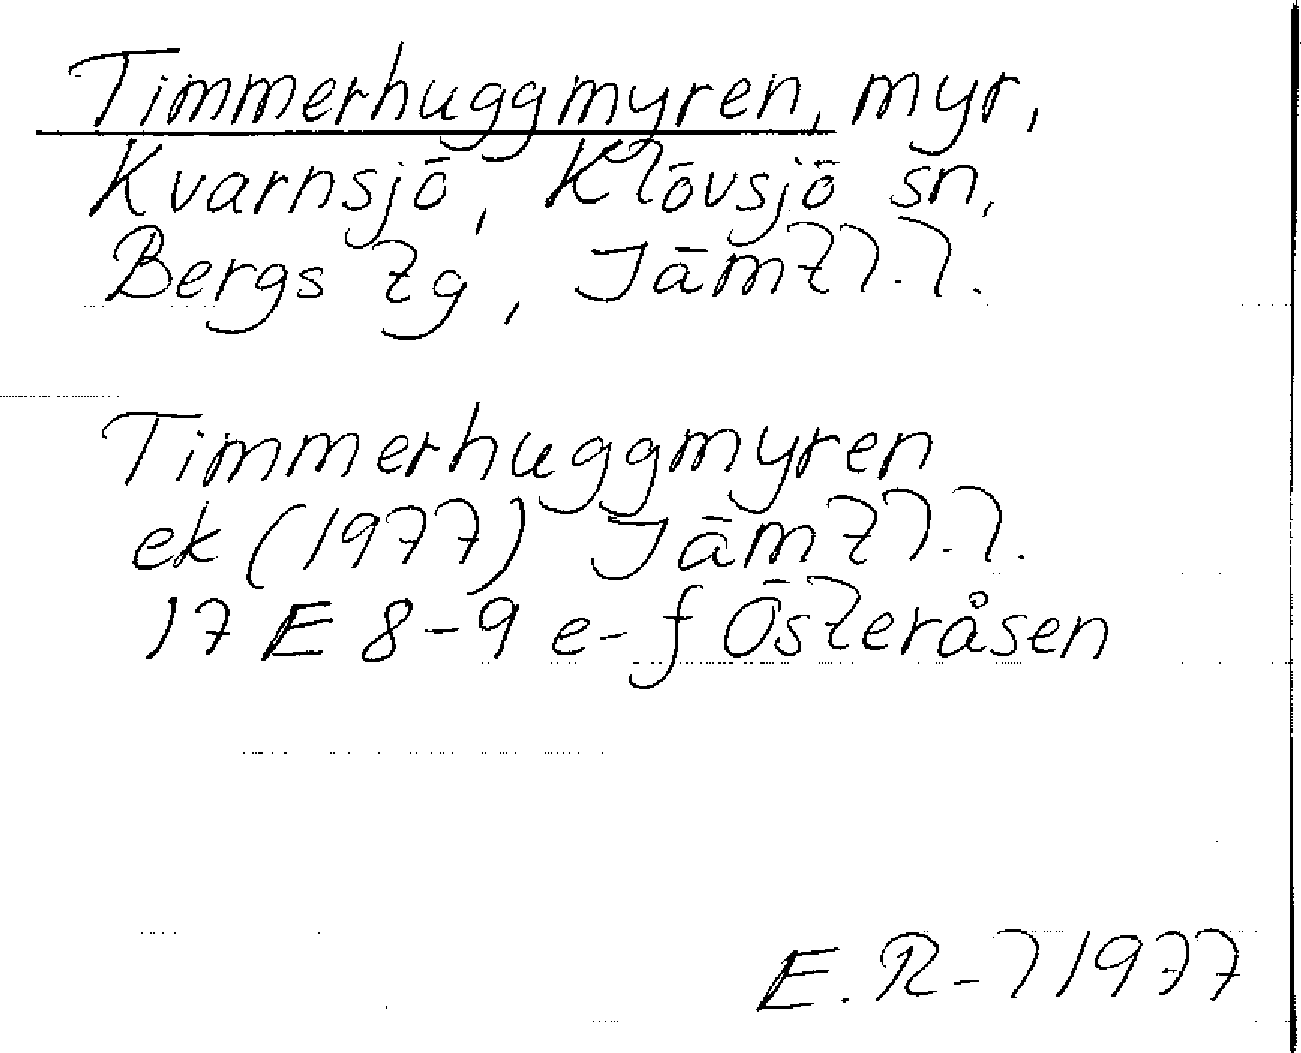 Timmerhuggmyren, myr,
Kvarnsjö, Klövsjö sn,
Bergs tg, Jämtl. l.
Timmerhuggmyren
ek (1977) Jämtl. l.
17 E 8-9 e-f Österåsen
E. R-l 1977